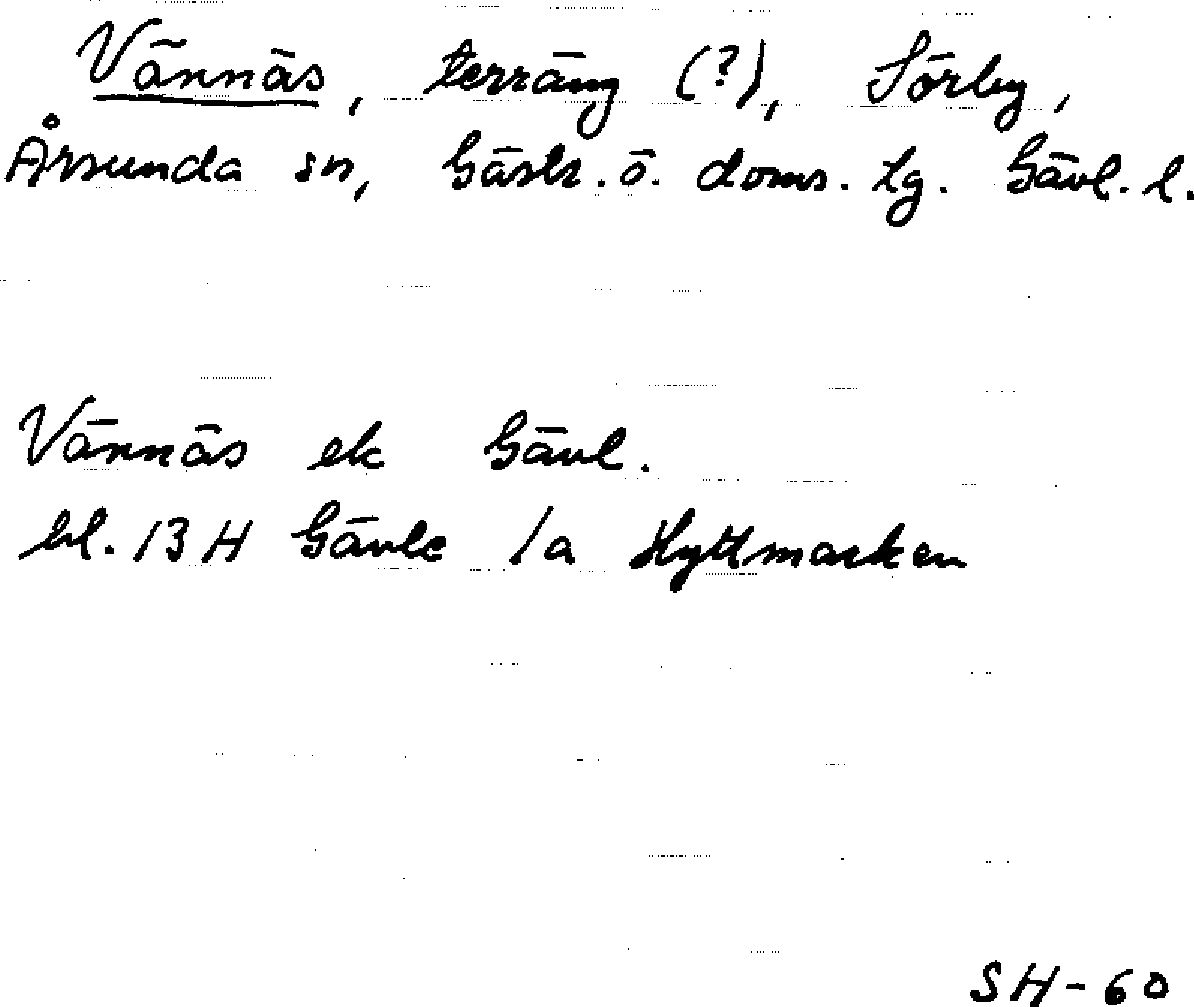 Vännäs, terräng (?), Sörby,
Årsunda sn, Gästr. ö. doms. tg. Gävl. l.
Vännäs ek Gävl.
bl. 13 H Gävle 1a Hyttmarken
SH-60